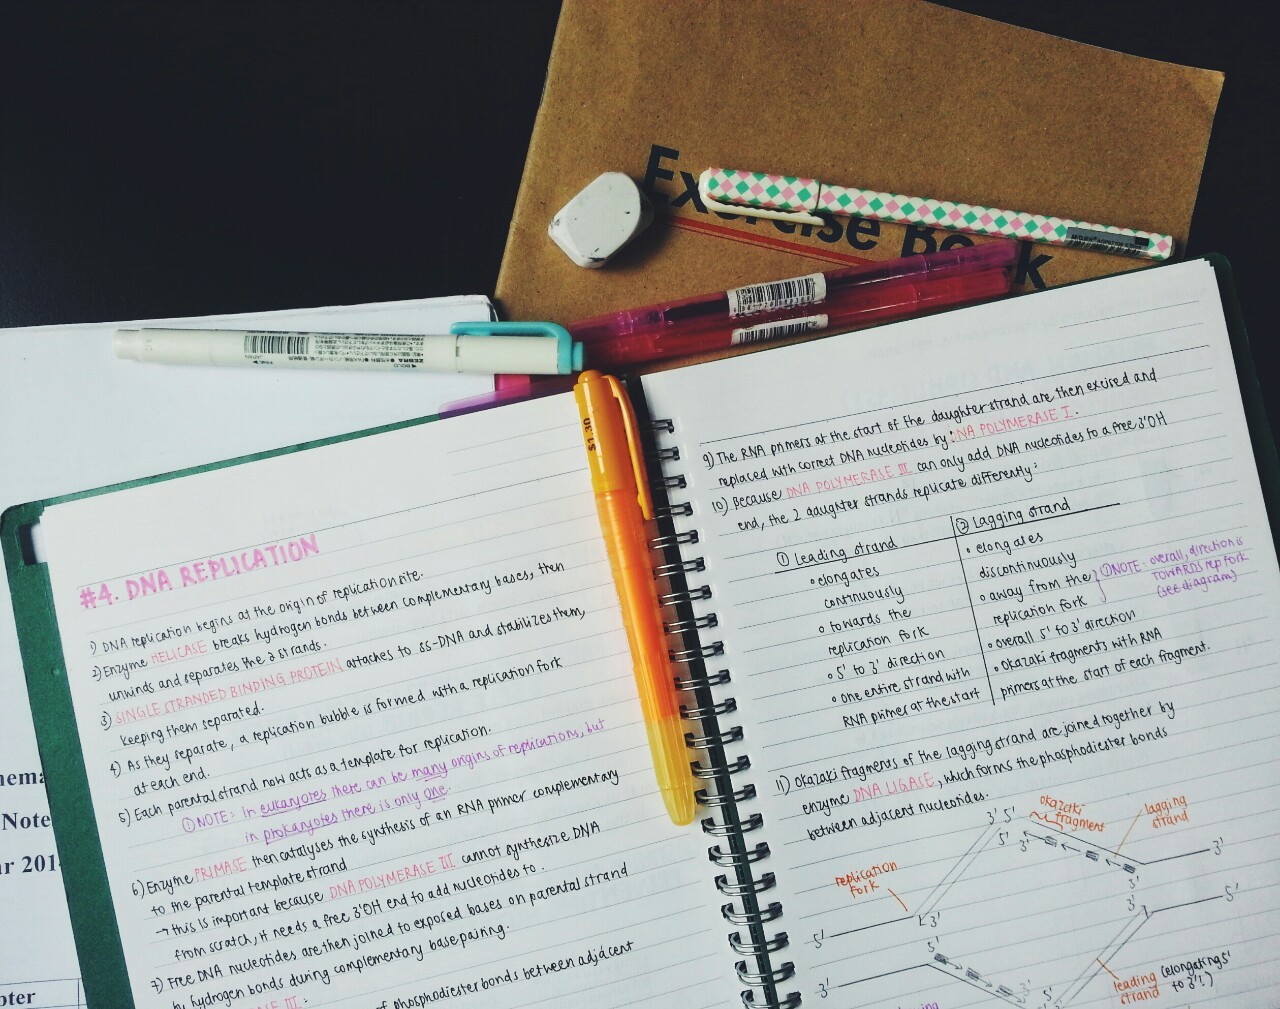 Exercise Book
ZEBRA
BOLD
$1.30
#4. DNA REPLICATION
1) DNA replication begins at the origin of replication site.
2) Enzyme HELICASE breaks hydrogen bonds between complementary bases, then
unwinds and separates the 2 strands.
3) SINGLE STRANDED BINDING PROTEIN attaches to ss-DNA and stabilizes them,
keeping them separated.
4) As they separate, a replication bubble is formed with a replication fork
at each end.
5) Each parental strand now acts as a template for replication.
① NOTE: in eukaryotes there can be many origins of replications, but
in prokaryotes there is only one.
6) Enzyme PRIMASE then catalyses the synthesis of an RNA primer complementary
to the parental template strand
→ this is important because DNA POLYMERASE III cannot synthesize DNA
from scratch, it needs a free 3'OH end to add nucleotides to.
7) Free DNA nucleotides are then joined to exposed bases on parental strand
by hydrogen bonds during complementary base pairing.
III:
of phosphodiester bonds between adjacent
9) The RNA primers at the start of the daughter strand are then excised and
replaced with correct DNA nucleotides by DNA POLYMERASE I.
10) Because DNA POLYMERASE III can only add DNA nucleotides to a free 3'OH
end, the 2 daughter strands replicate differently:
① Leading strand
• elongates
continuously
• towards the
replication fork
• 5' to 3' direction
• one entire strand with
RNA primer at the start
② Lagging strand
• elongates
discontinuously
• away from the
replication fork
• overall 5' to 3' direction
• Okazaki fragments with RNA
primers at the start of each fragment.
① NOTE: overall, direction is
TOWARDS rep fork
(see diagram)
11) Okazaki fragments of the lagging strand are joined together by
enzyme DNA LIGASE, which forms the phosphodiester bonds
between adjacent nucleotides.
replication
fork
okazaki
fragment
lagging
strand
3' 5'
5'
3'
3'
5'
3'
5'
3'
5'
5'
3'
3'
5'
leading
strand
(elongatings'
to 3'!)
Note